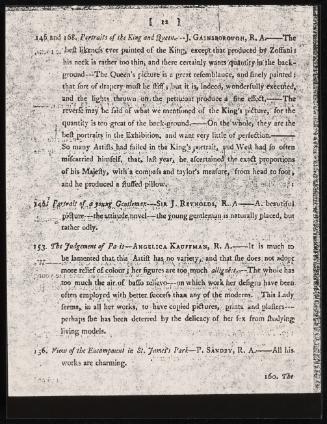 [ 12 ]
146 and 168. Portraits of the King and Queen.—J. GAINSBOROUGH, R. A.—The
best likeness ever painted of the King, except that produced by Zoffani:
his neck is rather too thin, and there certainly wants quantity in the back-
ground—The Queen's picture is a great resemblance, and finely painted:
that sort of drapery must be stiff; but it is, indeed, wonderfully executed,
and the lights thrown on the petticoat produce a fine effect,—The
reverse may be said of what we mentioned of the King's picture, for the
quantity is too great of the back-ground.—On the whole, they are the
best portraits in the Exhibition, and want very little of perfection.—
So many Artists had failed in the King's portrait, and West had so often
miscarried himself, that, last year, he ascertained the exact proportions
of his Majesty, with a compass and taylor's measure, from head to foot,
and he produced a stuffed pillow.
Portrait of a young Gentleman.—SIR J. REYNOLDS, R. A—A beautiful
picture—the attitude novel—the young gentleman is naturally placed, but
rather odly.
153. The Judgement of Pa is—ANGELICA KAUFFMAN, R. A.—It is much to
be lamented that this Artist has no variety, and that she does not adopt
more relief of colour; her figures are too much The whole has
too much the air of basso relievo—on which work her designs have been
often employed with better success than any of the moderns. This Lady
seems, in all her works, to have copied pictures, prints and plasters—
perhaps she has been deterred by the delicacy of her sex from studying
living models.
156. View of the Encampment in St. James's Park—P. SANDBY, R. A.—All his
works are charming.
160. The